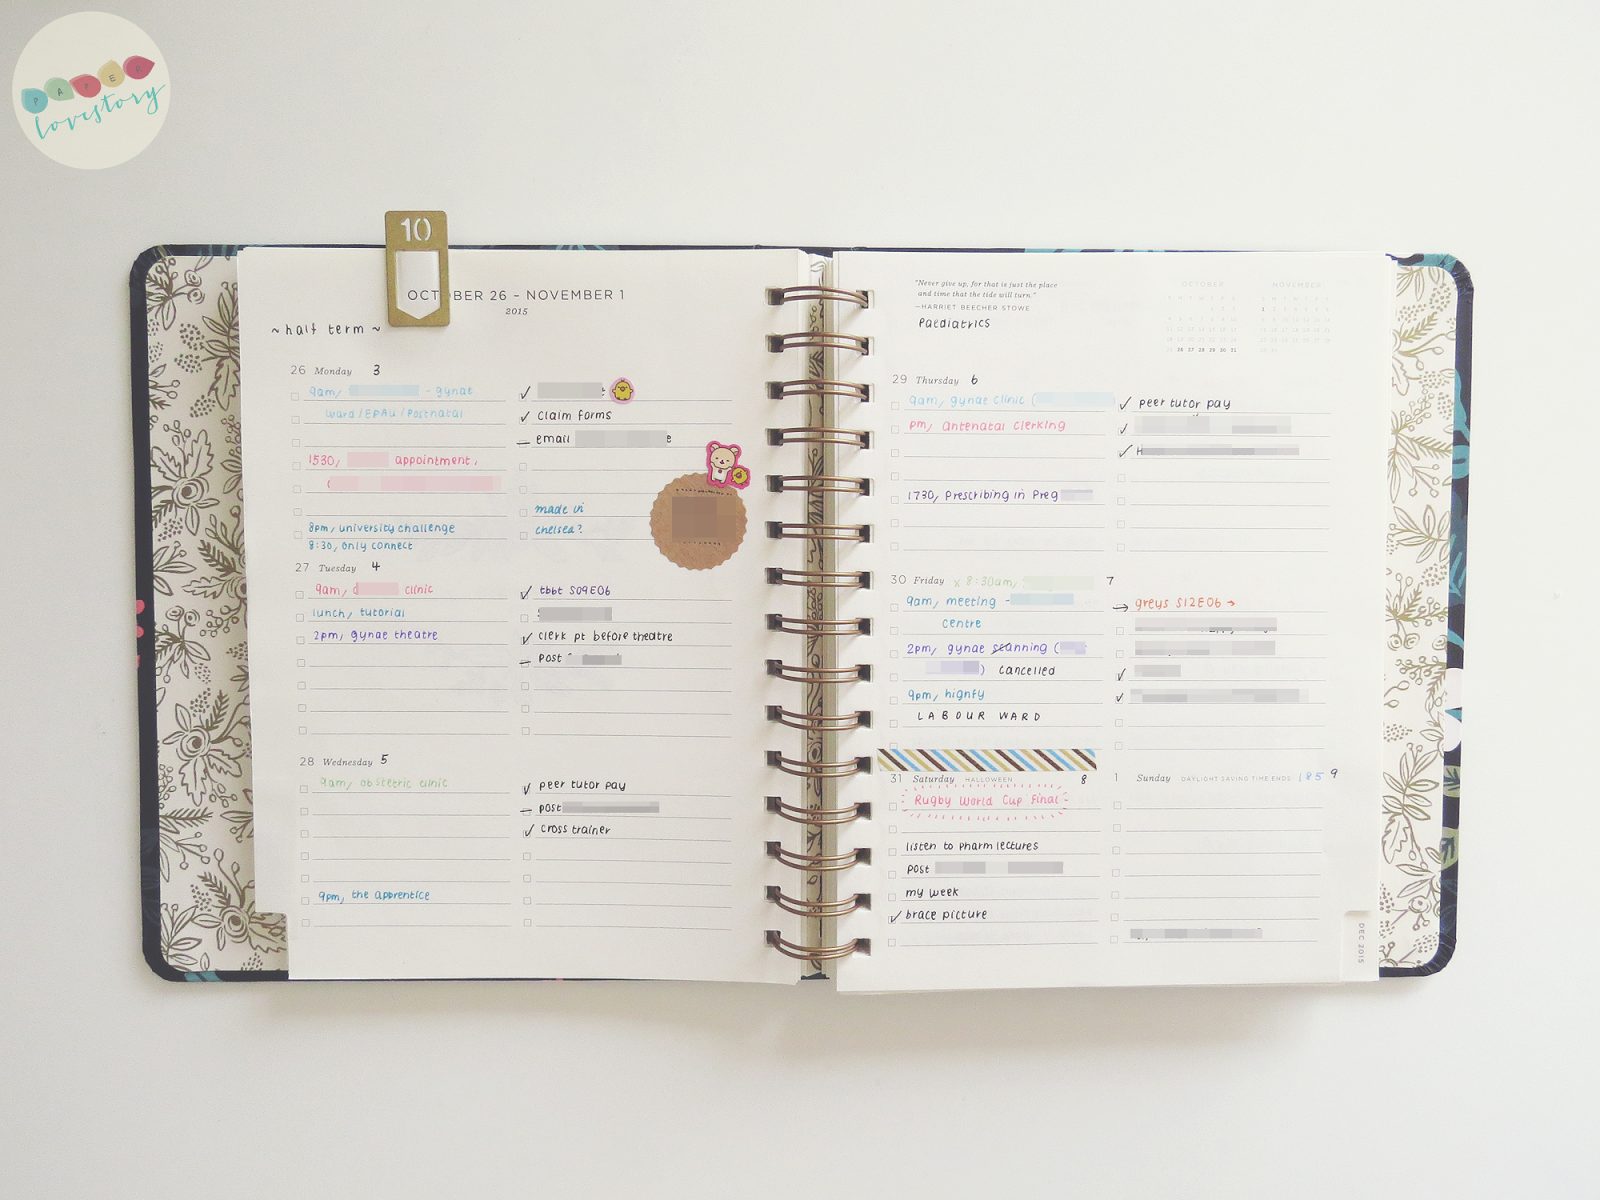 PAPER
lovestory
10
OCTOBER 26 – NOVEMBER 1
2015
~ half term ~
26 Monday 3
9am, - gynae
ward/EPAU/Postnatal
1530, appointment,
8pm, university challenge
8:30, only connect
✓
✓ claim forms
– email
made in
chelsea?
27 Tuesday 4
9am, clinic
lunch, tutorial
2pm, gynae theatre
✓ tbbt S09E06
✓ clerk pt before theatre
– post
28 Wednesday 5
9am, obstetric clinic
9pm, the apprentice
✓ peer tutor pay
– post
✓ cross trainer
"Never give up, for that is just the place
and time that the tide will turn."
—HARRIET BEECHER STOWE
Paediatrics
OCTOBER
NOVEMBER
29 Thursday 6
9am, gynae clinic (
pm, antenatal clerking
1730, Prescribing in Preg
✓ peer tutor pay
✓
✓ H
30 Friday x 8:30am, 7
9am, meeting -
centre
2pm, gynae scanning (
) cancelled
9pm, hignfy
LABOUR WARD
→ greys S12E06 →
✓
✓
31 Saturday HALLOWEEN 8
Rugby World Cup Final
listen to pharm lectures
post
my week
✓ brace picture
1 Sunday DAYLIGHT SAVING TIME ENDS 185 9
DEC 2015